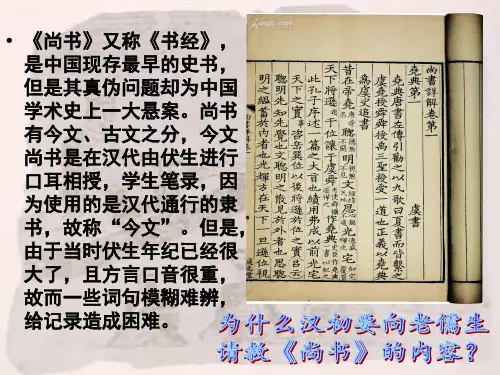 • 《尚书》又称《书经》，
是中国现存最早的史书，
但是其真伪问题却为中国
学术史上一大悬案。尚书
有今文、古文之分，今文
尚书是在汉代由伏生进行
口耳相授，学生笔录，因
为使用的是汉代通行的隶
书，故称“今文”。但是，
由于当时伏生年纪已经很
大了，且方言口音很重，
故而一些词句模糊难辨，
给记录造成困难。
尚書詳解卷第一
虞書
堯典第一
堯典唐書左傳引勸之以九歌曰夏書而皆繫之
虞堯授舜舜授禹三聖授受一道也正義以堯典
為虞史追書
昔在帝堯聰明文思光宅
天下將遜于位讓于虞舜作堯典
此孔子序述一篇之大旨也績用弗成以前光宅
天下之實事咨岳巽位以後將遜於位之實
聰明先知先覺也文聰明之散見於外者也思聰
明之縕蓄於內者也光輝方在天下一旦遜位視
为什么汉初要向老儒生
请教《尚书》的内容？